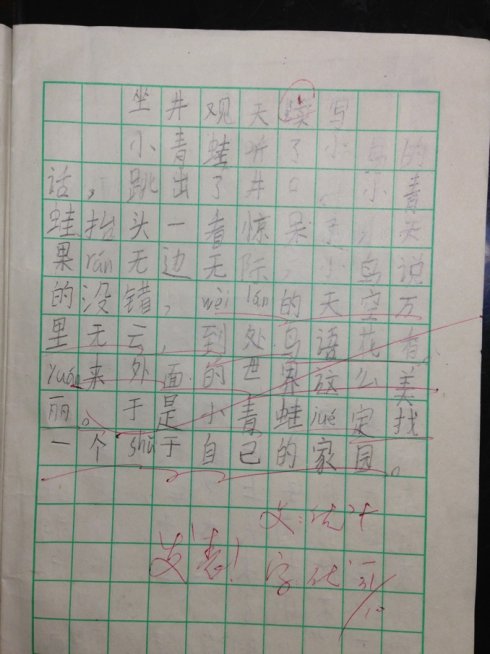 坐井观天续写
小青蛙听了小鸟的
话，跳出了井口，小青
蛙抬头一看惊呆了，天
果rán无边无际，小鸟说
的没错，wèi lán的天空万
里无云，到处鸟语花香，
yuán来外面的世界这么美
丽。于是小青蛙jué定找
一个shǔ于自己的家园。
文：优+
发表！字优
31/10